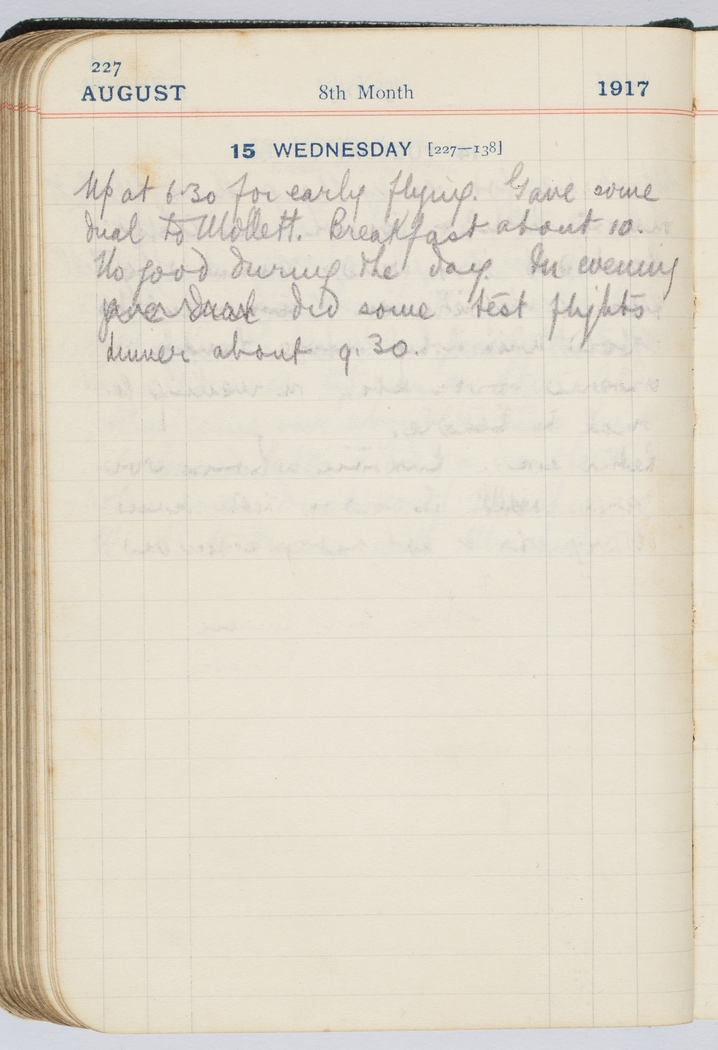 227
AUGUST 8th Month 1917
15 WEDNESDAY [227—138]
Up at 6.30 for early flying. Gave some
dual to Mollett. Breakfast about 10.
No good during the day. In evening
did some test flights
dinner about 9.30.